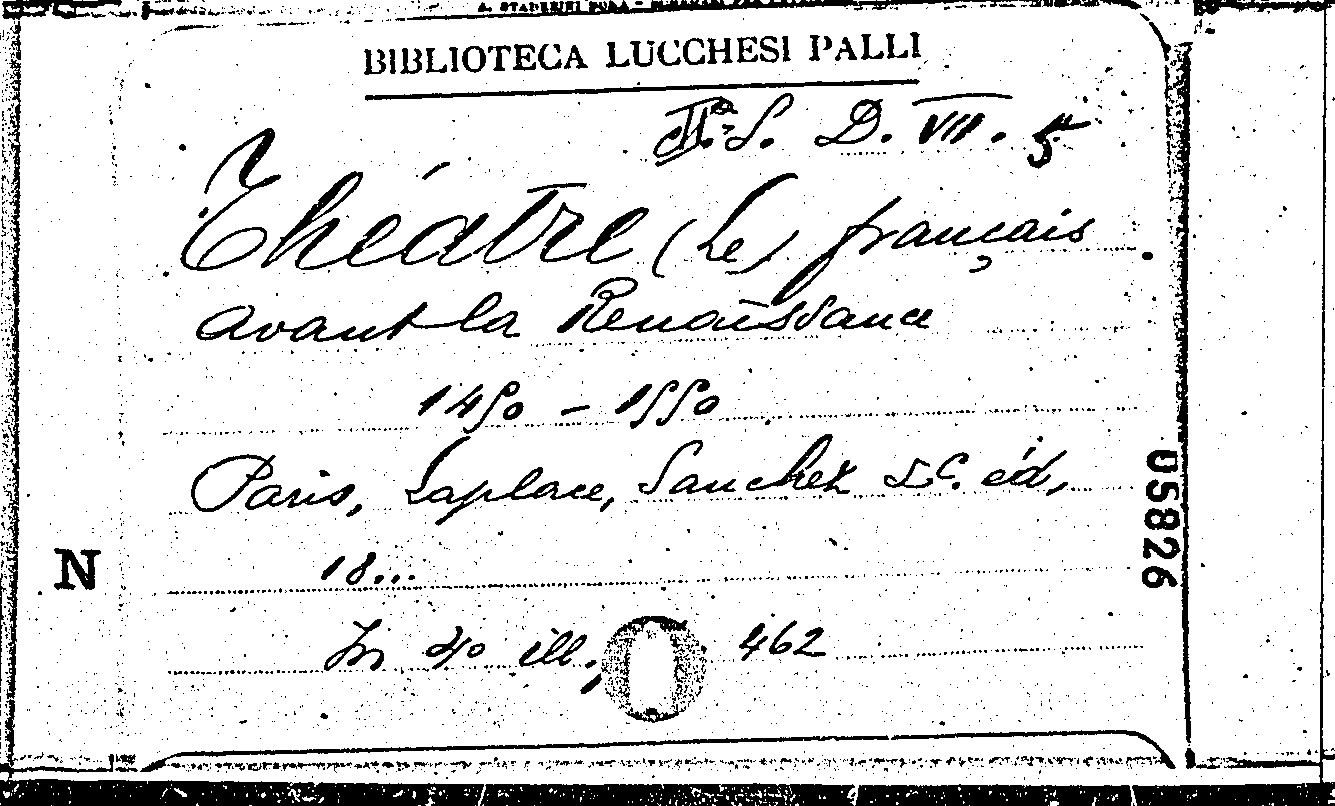 BIBLIOTECA LUCCHESI PALLI
IIª S. D. VII. 5
Théâtre (Le) français
avant la Renaissance
1450 - 1550
Paris, Laplace, Sanchez & C. éd,
18...
In 4º ill., 462
N
05826